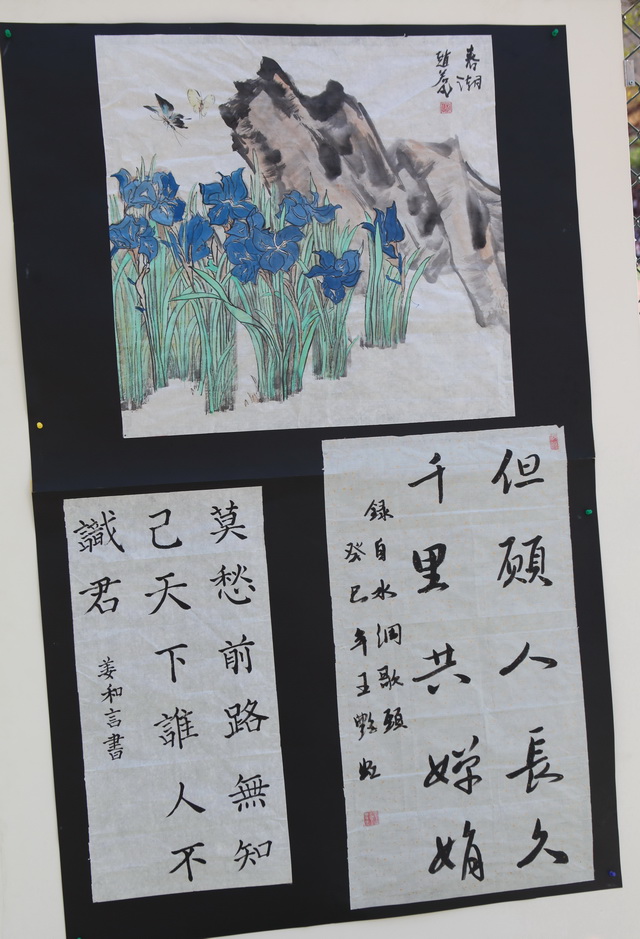 春湖
但願人長久
千里共嬋娟
録自水調歌頭
癸巳年王
莫愁前路無知
己天下誰人不
識君
姜和言書